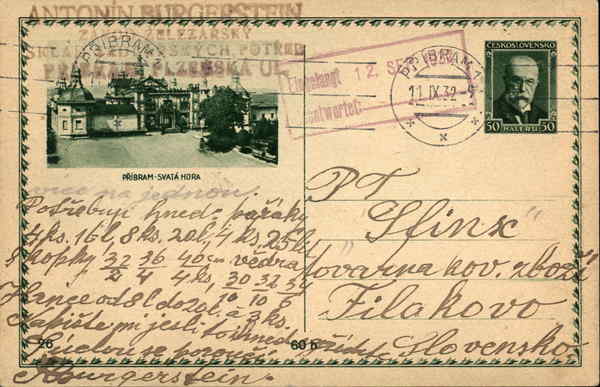 ANTONÍN BURGERSTEIN
ZÁVOD ŽELEZÁŘSKÝ
SKLAD KUCHYŇSKÝCH POTŘEB
PŘÍBRAM, PLZEŇSKÁ UL.
PŘÍBRAM 1
Eingelangt 12. SEP. 1932
Beantwortet:
PŘÍBRAM 1
11.IX.32-9
ČESKOSLOVENSKO
50 HALÉŘŮ 50
PŘÍBRAM - SVATÁ HORA
více na jednou.
Potřebuji hned: pařáky
4 ks. 16 l, 8 ks. 20 l, 4 ks. 25 l.
škopky 32/2 36/4 40 cm/4 ks, vědra
30/10 32/10 34/6
Hrnce od 8 l do 20 l. a 3 ks.
Napište mi jesli to ihned
Burgerstein.
P T
"Sfinx"
továrna kov. zboží
Filakovo
Slovensko
26
60 h